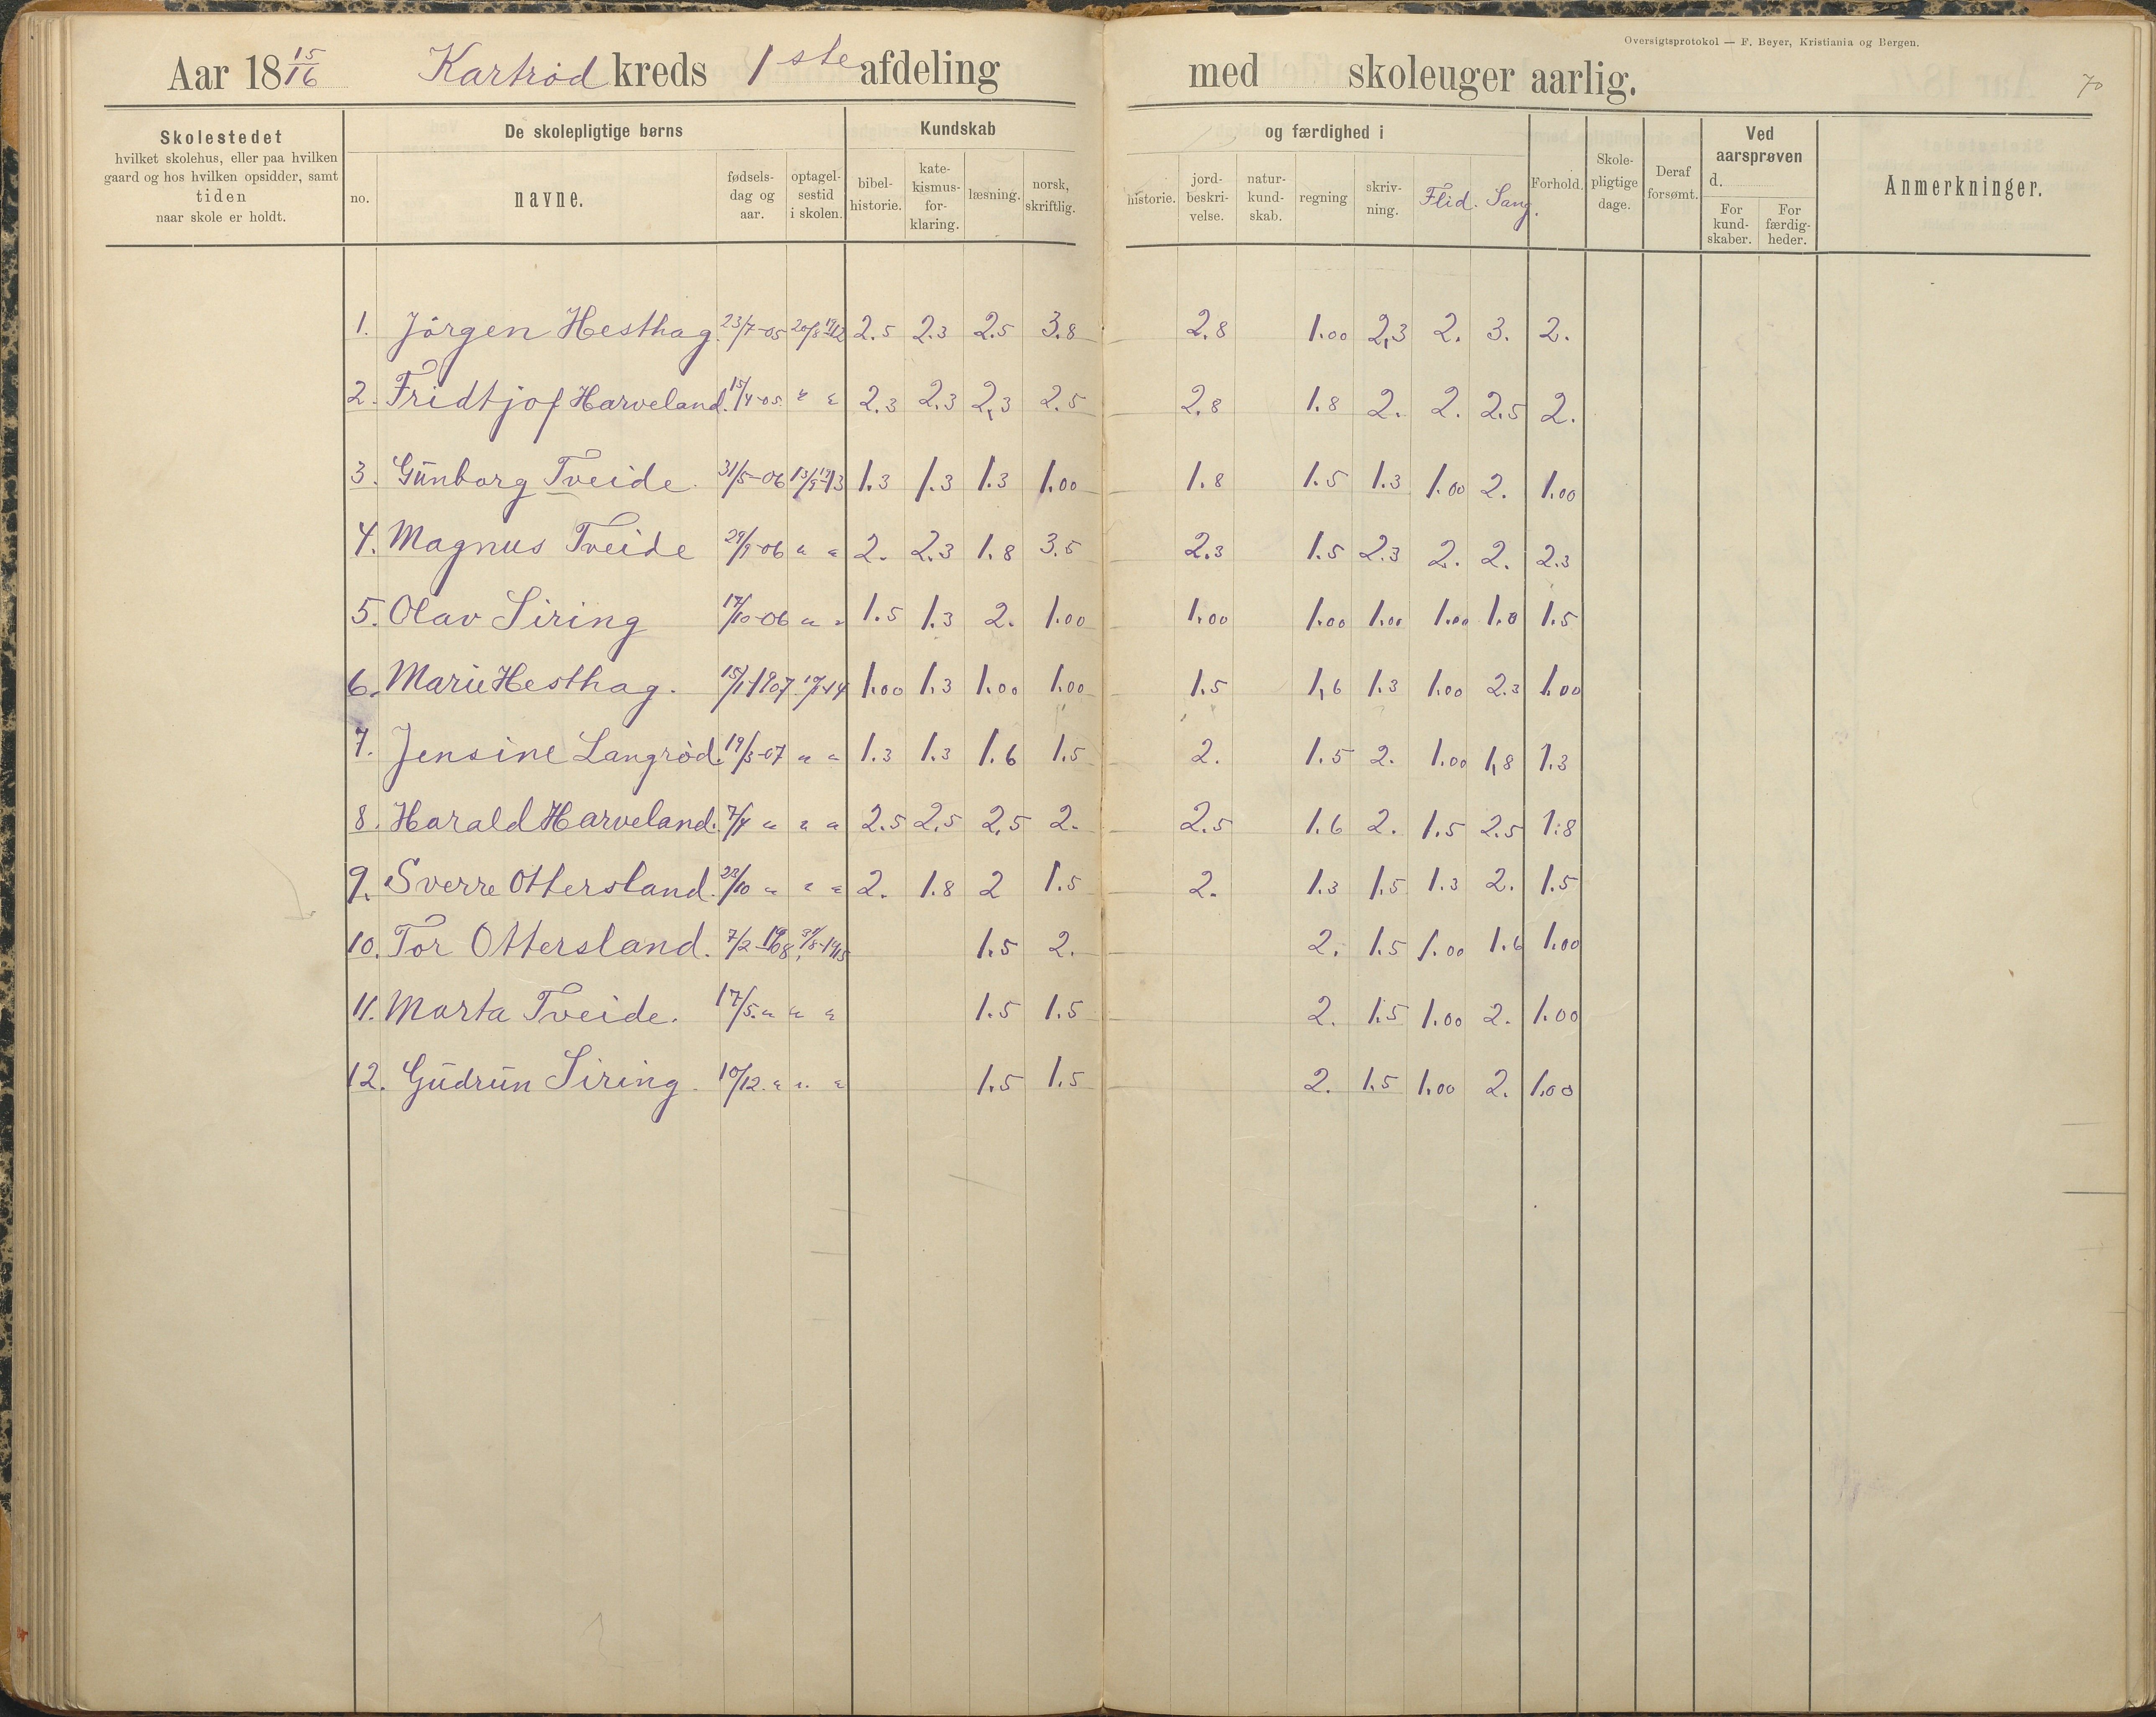 Oversigtsprotokol — F. Beyer, Kristiania og Bergen.
Aar 18 15/16 Kartrød kreds 1ste afdeling med skoleuger aarlig. 70
Skolestedet
hvilket skolehus, eller paa hvilken
gaard og hos hvilken opsidder, samt
tiden
naar skole er holdt.
De skolepligtige børns
no. navne. fødsels-dag og aar. optagel-sestid i skolen.
Kundskab og færdighed i
bibel-historie. kate-kismus-for-klaring. læsning. norsk, skriftlig. historie. jord-beskri-velse. natur-kund-skab. regning skriv-ning. Flid. Sang.
Forhold. Skole-pligtige dage. Deraf forsømt.
Ved aarsprøven
d.
For kund-skaber. For færdig-heder.
Anmerkninger.
1. Jørgen Hesthag. 23/7-05 20/8 1912 2.5 2.3 2.5 3.8 2.8 1.00 2,3 2. 3. 2.
2. Fridtjof Harveland. 15/4-05 " " 2.3 2.3 2,3 2.5 2.8 1.8 2. 2. 2.5 2.
3. Gunborg Tveide. 31/5-06 1913 1.3 1.3 1.3 1.00 1.8 1.5 1.3 1.00 2. 1.00
4. Magnus Tveide 29/9-06 " " 2. 2.3 1.8 3.5 2.3 1.5 2.3 2. 2. 2.3
5. Olav Siring 17/10-06 " " 1.5 1.3 2. 1.00 1.00 1.00 1.00 1.00 1.0 1.5
6. Marie Hesthag. 15/1-1907 1.00 1.3 1.00 1.00 1.5 1,6 1.3 1.00 2.3 1.00
7. Jensine Langrød. 19/3-07 " " 1.3 1.3 1.6 1.5 2. 1.5 2. 1.00 1,8 1.3
8. Harald Harveland. 7/4 " " " 2.5 2.5 2,5 2. 2.5 1.6 2. 1.5 2.5 1.8
9. Sverre Ottersland. 23/10 " " " 2. 1.8 2 1.5 2. 1.3 1.5 1.3 2. 1.5
10. Tor Ottersland. 7/2-1908 1915 1.5 2. 2. 1.5 1.00 1.6 1.00
11. Marta Tveide. 17/5. " " " 1.5 1.5 2. 1.5 1.00 2. 1.00
12. Gudrun Siring. 10/12. " " " 1.5 1.5 2. 1.5 1.00 2. 1.00